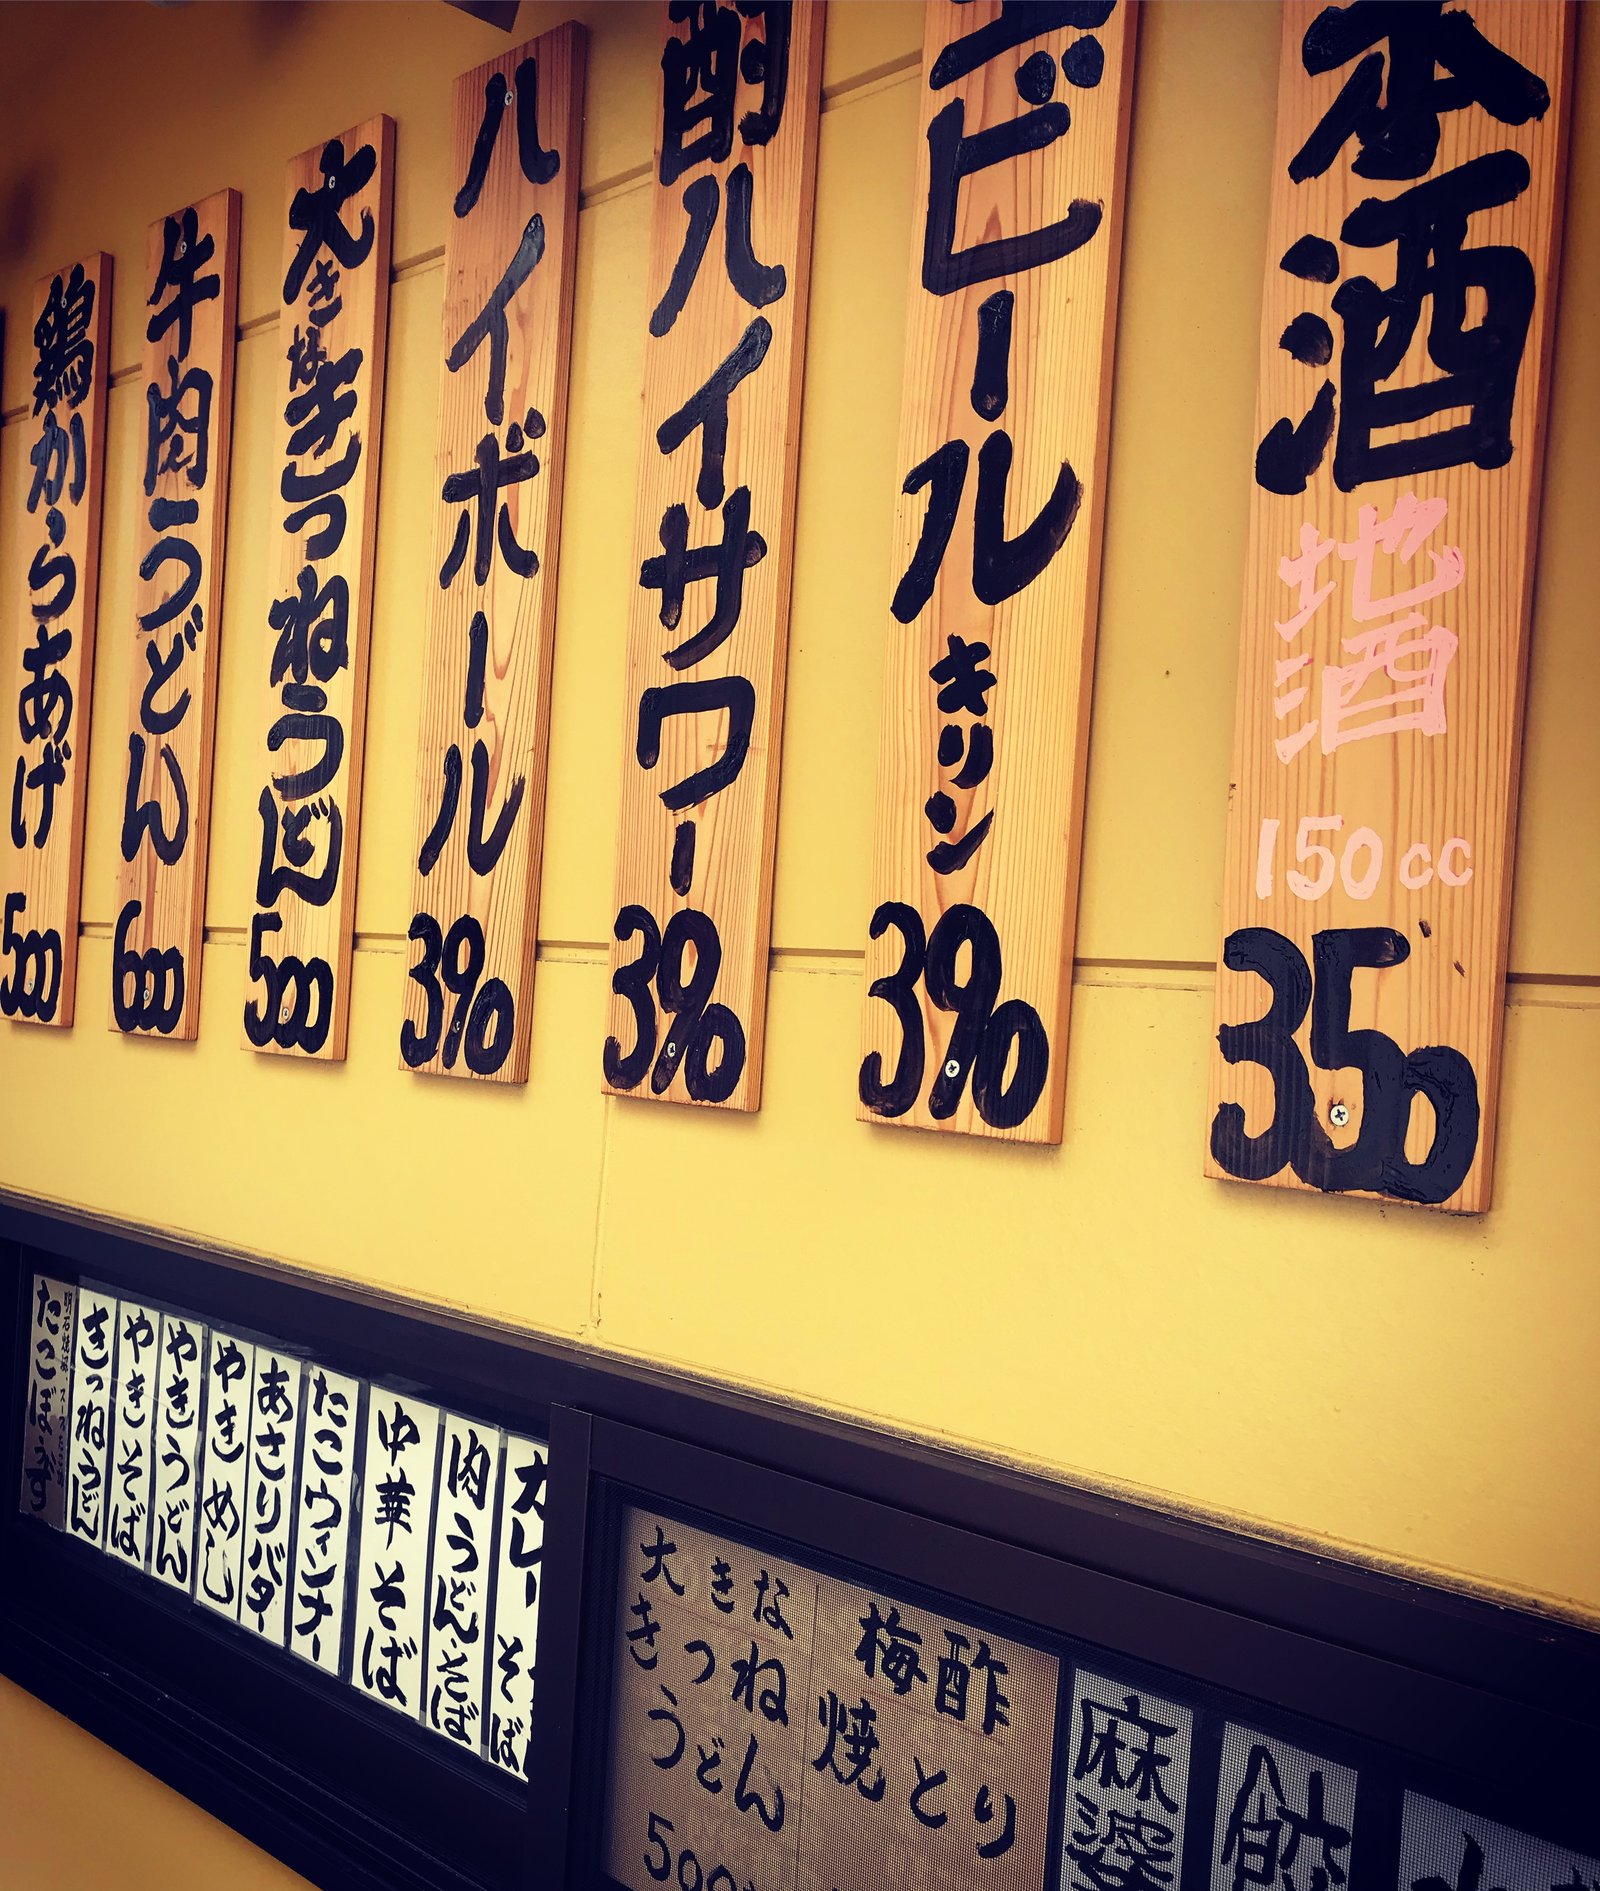 本酒 地酒 150cc 350
ビール キリン 390
酎ハイサワー 390
ハイボール 390
大きなきつねうどん 500
牛肉うどん 600
鶏からあげ 500
カレーそば
肉うどん・そば
中華そば
たこウィンナー
あさりバター
やきめし
やきうどん
やきそば
きつねうどん
梅酢
焼とり
大きな
きつね
うどん
500
麻婆